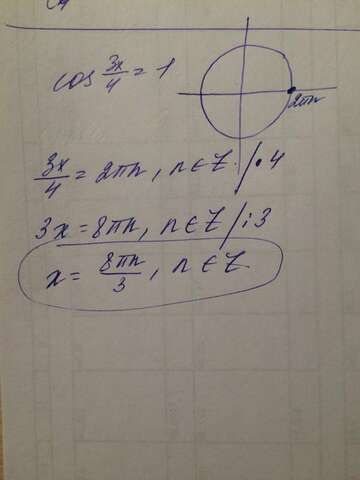 cos 3x/4 = 1
2πn
3x/4 = 2πn, n∈Z /•4
3x = 8πn, n∈Z /:3
x = 8πn/3, n∈Z